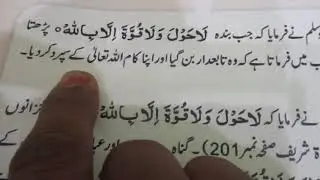 وسلم نے فرمایا کہ جب بندہ لَا حَوْلَ وَلَا قُوَّةَ اِلَّا بِاللهِ پڑھتا
ب میں فرماتا ہے کہ وہ تابعدار بن گیا اور اپنا کام اللہ تعالیٰ کے سپرد کر دیا۔
نے فرمایا کہ لَا حَوْلَ وَلَا قُوَّةَ اِلَّا بِاللهِ خزانوں
ة شریف صفحہ نمبر 201)۔ گناہ اور کے